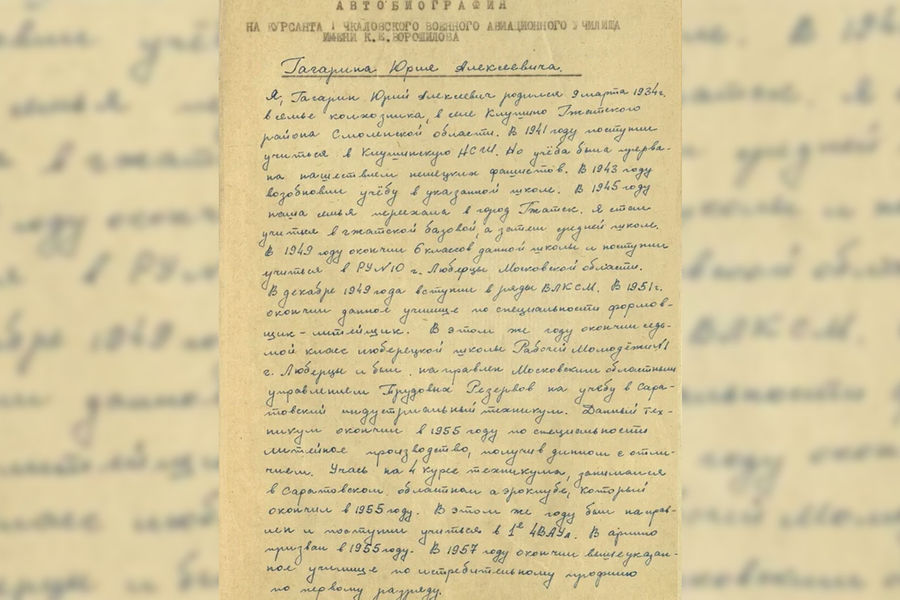 АВТОБИОГРАФИЯ
НА КУРСАНТА 1 ЧКАЛОВСКОГО ВОЕННОГО АВИАЦИОННОГО УЧИЛИЩА
ИМЕНИ К.Е.ВОРОШИЛОВА
Гагарина Юрия Алексеевича.
Я, Гагарин Юрий Алексеевич родился 9 марта 1934г.
в семье колхозника, в селе Клушино Гжатского
района Смоленской области. В 1941 году поступил
учиться в Клушинскую НСШ. Но учёба была прерва-
на нашествием немецких фашистов. В 1943 году
возобновил учёбу в указанной школе. В 1945 году
наша семья переехала в город Гжатск. Я стал
учиться в гжатской базовой, а затем средней школе.
В 1949 году окончил 6 классов данной школы и поступил
учиться в РУ №10 г. Люберцы Московской области.
В декабре 1949 года вступил в ряды ВЛКСМ. В 1951г.
окончил данное училище по специальности формов-
щик-литейщик. В этом же году окончил седь-
мой класс люберецкой школы Рабочей Молодёжи №1
г. Люберцы и был направлен Московским областным
управлением Трудовых Резервов на учёбу в Сара-
товский индустриальный техникум. Данный тех-
никум окончил в 1955 году по специальности
литейное производство, получив диплом с отли-
чием. Учась на 4 курсе техникума, занимался
в Саратовском областном аэроклубе, который
окончил в 1955 году. В этом же году был направ-
лен и поступил учиться в 1е ЧВАУл. В армию
призван в 1955 году. В 1957 году окончил вышеуказан-
ное училище по истребительному профилю
по первому разряду.